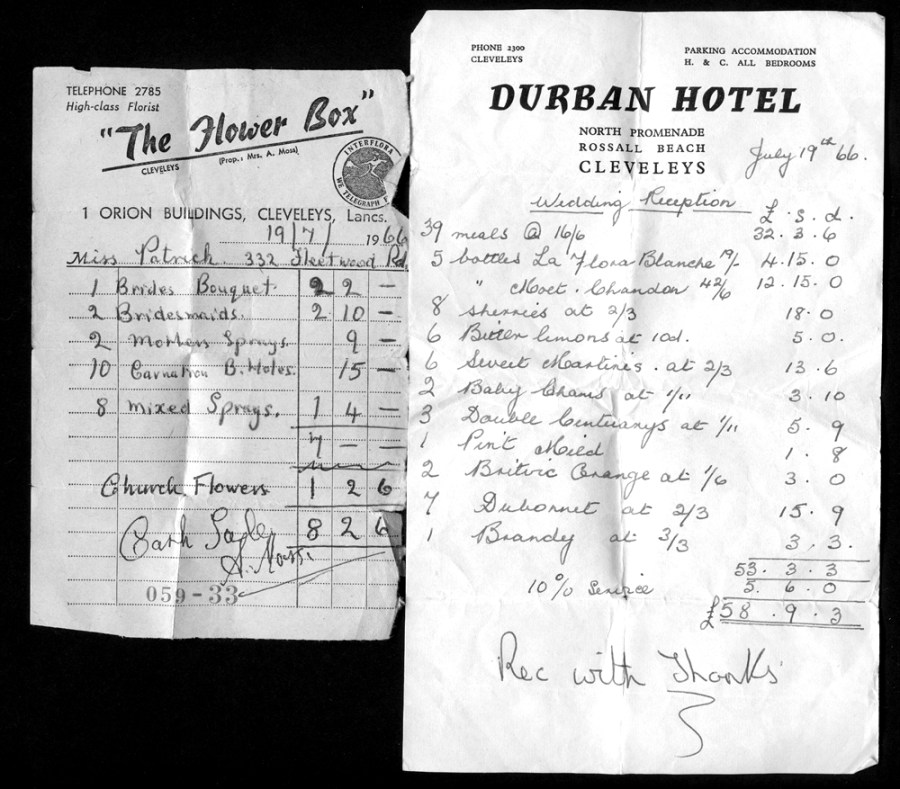 TELEPHONE 2785
High-class Florist
"The Flower Box"
(Prop.: Mrs. A. Moss)
CLEVELEYS
INTERFLORA
WE TELEGRAPH
1 ORION BUILDINGS, CLEVELEYS, Lancs.
19/7/ 1966
Miss Patrick. 332 Fleetwood Rd
1 Brides Bouquet. 2 2 —
2 Bridesmaids. 2 10 —
2 Mothers Sprays. 9 —
10 Carnation B. Holes. 15 —
8 Mixed Sprays. 1 4 —
7 — —
Church Flowers 1 2 6
8 2 6
Cash
059-33
PHONE 2300
CLEVELEYS
PARKING ACCOMMODATION
H. & C. ALL BEDROOMS
DURBAN HOTEL
NORTH PROMENADE
ROSSALL BEACH
CLEVELEYS
July 19th 66.
Wedding Reception
£ . s . d.
39 meals @ 16/6 32 . 3 . 6
5 bottles La Flora Blanche 19/- 4 . 15 . 0
" Moet . Chandon 42/6 12 . 15 . 0
8 sherries at 2/3 18 . 0
6 Bitter lemons at 10d. 5 . 0
6 Sweet Martinis . at 2/3 13 . 6
2 Baby Chams at 1/11 3 . 10
3 Double Centuarys at 1/11 5 . 9
1 Pint Mild 1 . 8
2 Britvic Orange at 1/6 3 . 0
7 Dubonnet at 2/3 15 . 9
1 Brandy at 3/3 3 . 3 .
53 . 3 . 3
10% Service 5 . 6 . 0
£58 . 9 . 3
Rec with Thanks